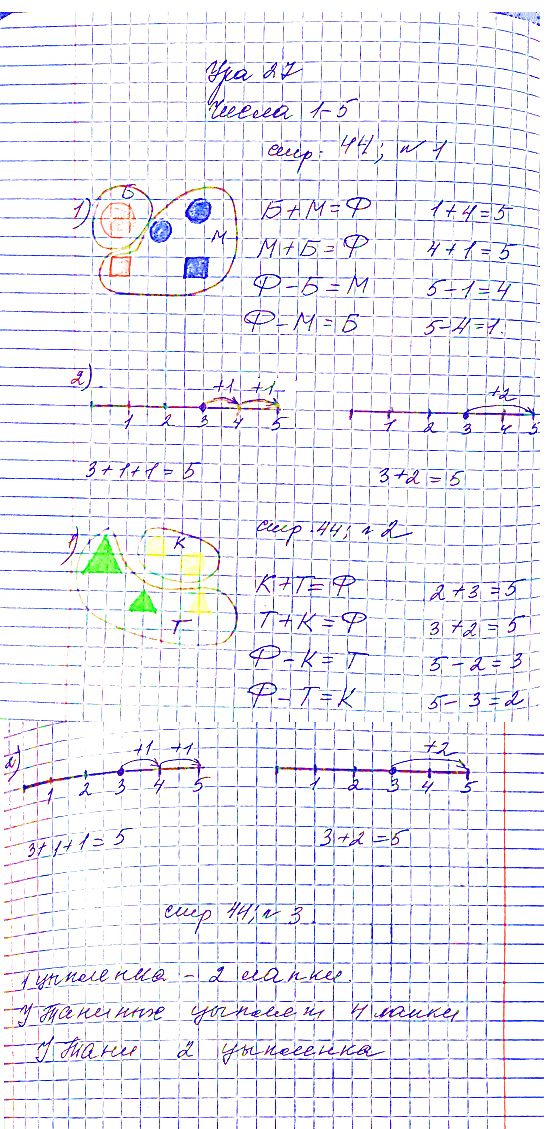 Урок 27
Числа 1-5
стр. 44; №1
1) Б М
Б+М=Ф 1+4=5
М+Б=Ф 4+1=5
Ф-Б=М 5-1=4
Ф-М=Б 5-4=1.
2) +1 +1 +2
1 2 3 4 5 1 2 3 4 5
3+1+1=5 3+2=5
стр. 44; №2
1) К Т
К+Т=Ф 2+3=5
Т+К=Ф 3+2=5
Ф-К=Т 5-2=3
Ф-Т=К 5-3=2
2) +1 +1 +2
1 2 3 4 5 1 2 3 4 5
3+1+1=5 3+2=5
стр 44; №3.
1 цыпленка - 2 лапки.
У Таниных цыплят 4 лапки
У Тани 2 цыпленка